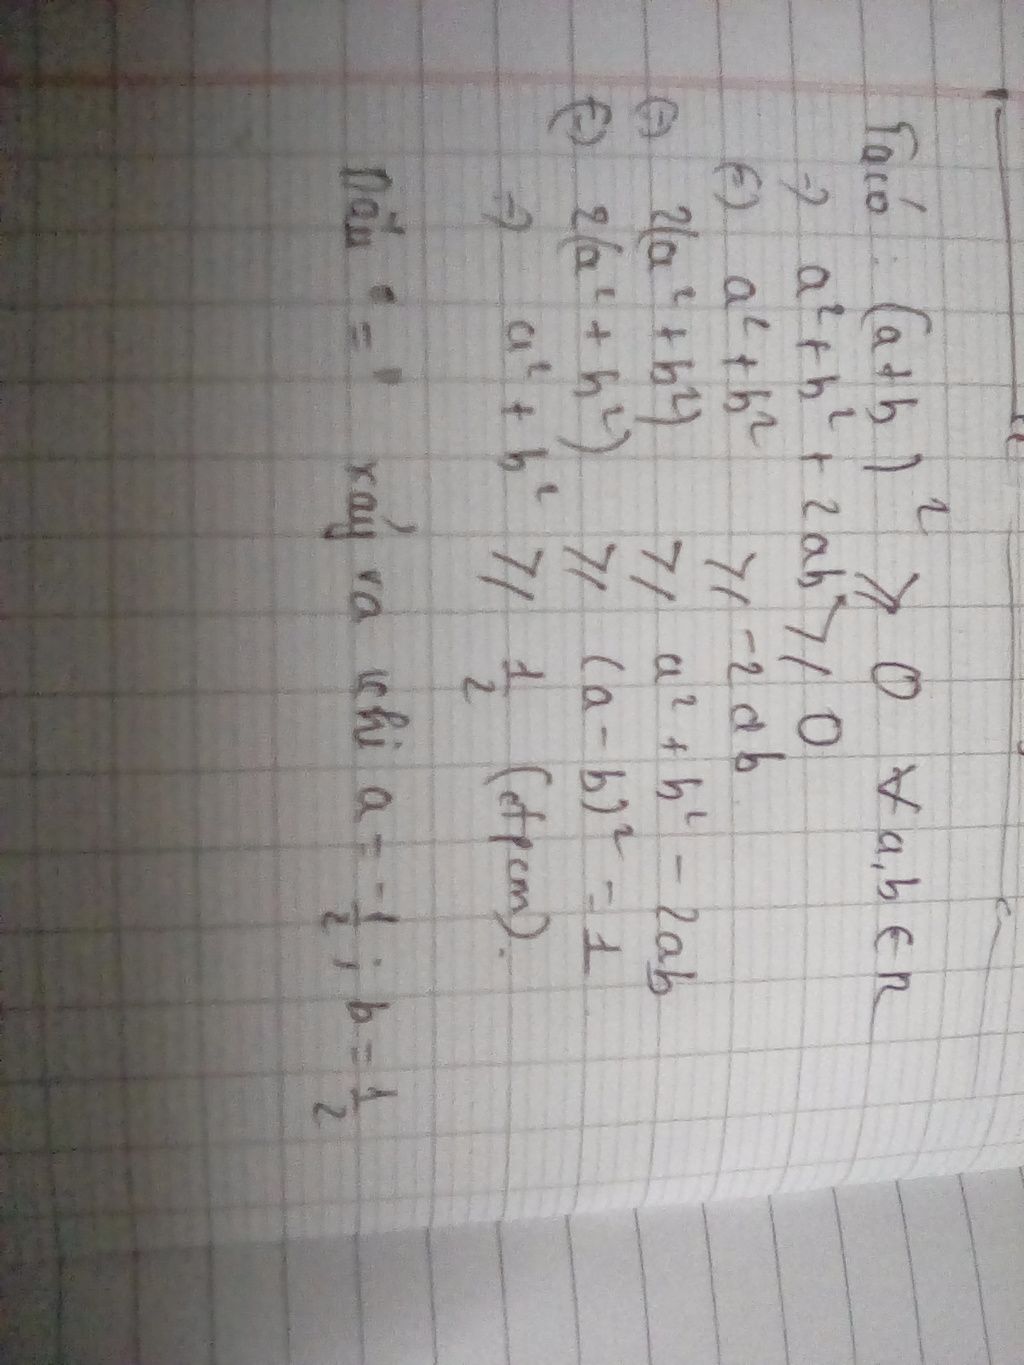 Ta có: (a+b)² ⩾ 0 ∀ a,b ∈ R
=> a² + b² + 2ab ⩾ 0
(=) a² + b² ⩾ -2ab
(=) 2(a² + b²) ⩾ a² + b² - 2ab
(=) 2(a² + b²) ⩾ (a - b)² = 1
=> a² + b² ⩾ 1/2 (đpcm).
Dấu "=" xảy ra khi a = -1/2 ; b = 1/2